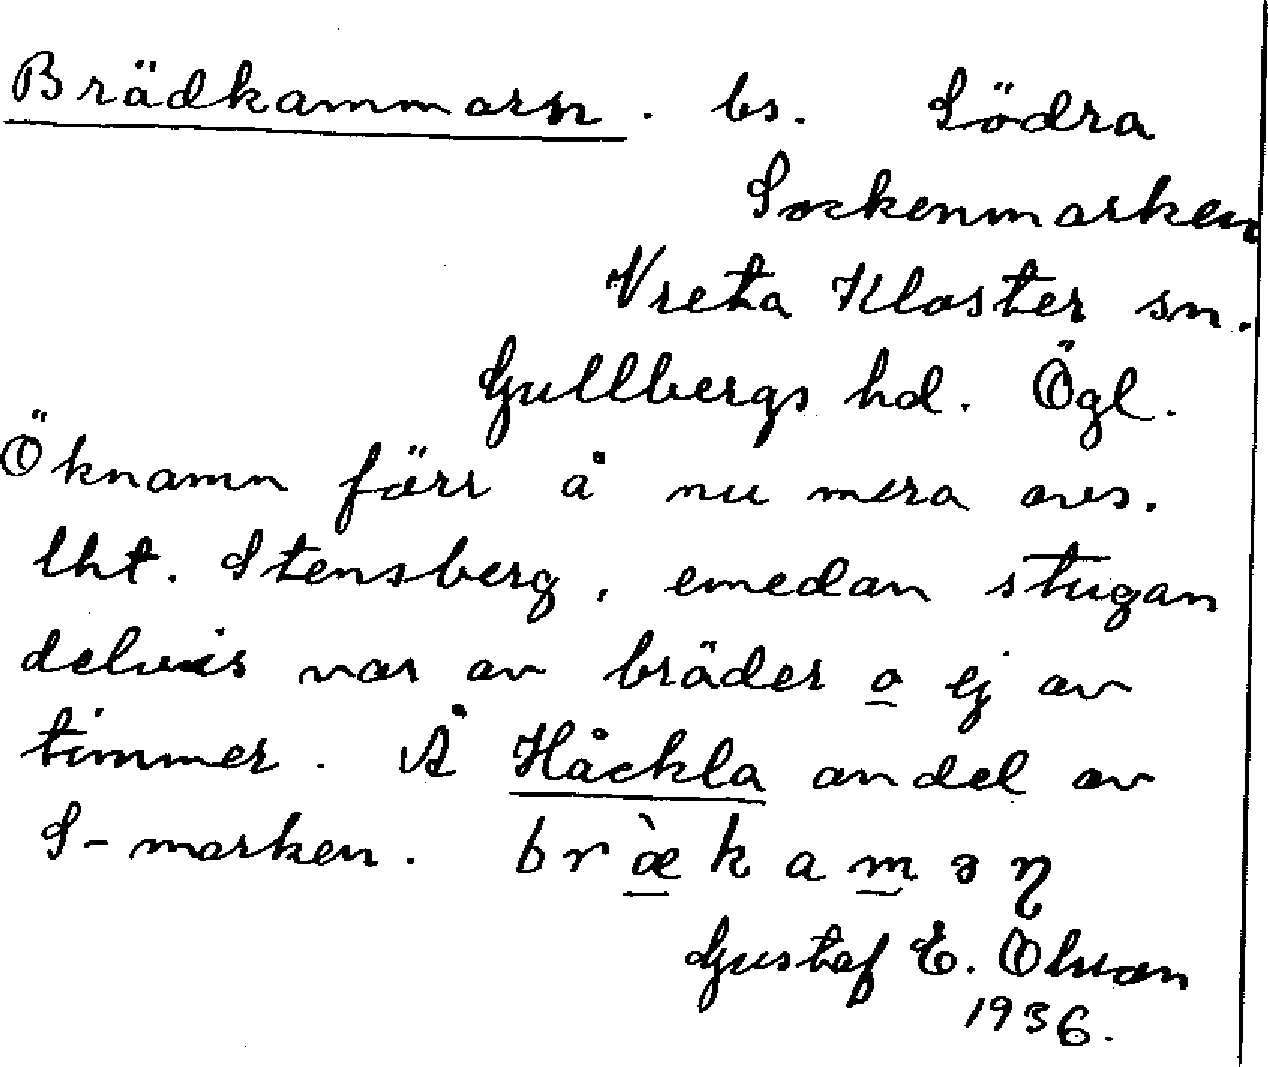 Brädkammarn. bs. Södra
Sockenmarken
Vreta Kloster sn.
Gullbergs hd. Ögl.
Öknamn förr å nu mera avs.
lht. Stensberg, emedan stugan
delvis var av bräder o ej av
timmer. Å Håckla andel av
S-marken. bræ̀kaməɳ
Gustaf E. Olson
1936.